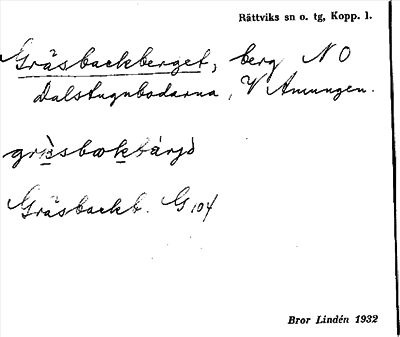 Rättviks sn o. tg, Kopp. l.
Gräsbackberget, berg NO
Dalstugubodarna, V Amungen.
Gräsbackb. G 104
Bror Lindén 1932